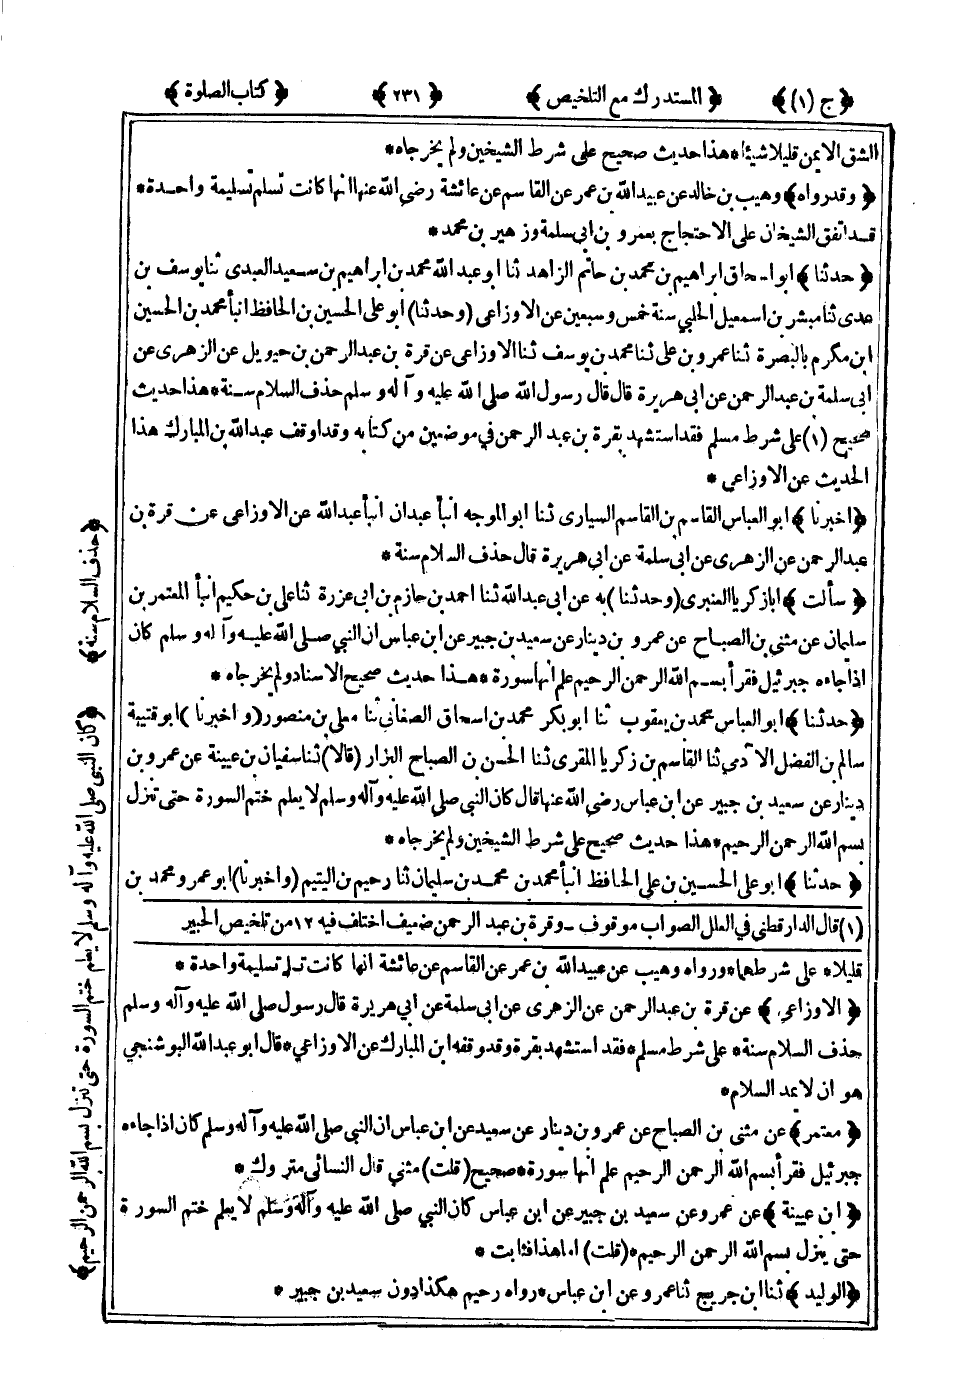 ﴿ ج (١) ﴾ ﴿ المستدرك مع التلخيص ﴾ ﴿ ٢٣١ ﴾ ﴿ كتاب الصلوة ﴾
الشق الايمن قليلا شيئا * هذا حديث صحيح على شرط الشيخين ولم يخرجاه *
﴿ وقد رواه ﴾ وهيب بن خالد عن عبيد الله بن عمر عن القاسم عن عائشة رضى الله عنها انها كانت تسلم تسليمة واحدة *
قد اتفق الشيخان على الاحتجاج بعمرو بن ابى سلمة وزهير بن محمد *
﴿ حدثنا ﴾ ابو اسحاق ابراهيم بن محمد بن حاتم الزاهد ثنا ابو عبد الله محمد بن ابراهيم بن سعيد العبدى ثنا يوسف بن
عدى ثنا مبشر بن اسمعيل الحلبي سنة خمس وسبعين عن الاوزاعى (وحدثنا) ابو على الحسين بن الحافظ انبأ محمد بن الحسين
ابن مكرم بالبصرة ثنا عمرو بن على ثنا محمد بن يوسف ثنا الاوزاعى عن قرة بن عبد الرحمن بن حيويل عن الزهرى عن
ابى سلمة بن عبد الرحمن عن ابى هريرة قال قال رسول الله صلى الله عليه وآله وسلم حذف السلام سنة * هذا حديث
صحيح (١) على شرط مسلم فقد استشهد بقرة بن عبد الرحمن في موضعين من كتابه وقد اوقف عبد الله بن المبارك هذا
الحديث عن الاوزاعى *
﴿ اخبرنا ﴾ ابو العباس القاسم بن القاسم السيارى ثنا ابو الموجه انبأ عبدان انبأ عبد الله عن الاوزاعى عن قرة بن
عبد الرحمن عن الزهرى عن ابى سلمة عن ابى هريرة قال حذف السلام سنة *
﴿ سألت ﴾ ابازكريا العنبرى (وحدثنا) به عن ابى عبد الله ثنا احمد بن حازم بن ابى عزرة ثنا على بن حكيم انبأ المعتمر بن
سليمان عن مثنى بن الصباح عن عمرو بن دينار عن سعيد بن جبير عن ابن عباس ان النبي صلى الله عليه وآله وسلم كان
اذا جاءه جبرئيل فقرأ بسم الله الرحمن الرحيم علم انها سورة * هذا حديث صحيح الاسناد ولم يخرجاه *
﴿ حدثنا ﴾ ابو العباس محمد بن يعقوب ثنا ابو بكر محمد بن اسحاق الصغانى ثنا معلى بن منصور (و اخبرنا) ابو قتيبة
سالم بن الفضل الآدمى ثنا القاسم بن زكريا المقرى ثنا الحسن بن الصباح البزار (قالا) ثنا سفيان بن عيينة عن عمرو بن
دينار عن سعيد بن جبير عن ابن عباس رضى الله عنها قال كان النبي صلى الله عليه وآله وسلم لا يعلم ختم السورة حتى تنزل
بسم الله الرحمن الرحيم * هذا حديث صحيح على شرط الشيخين ولم يخرجاه *
﴿ حدثنا ﴾ ابو على الحسين بن على الحافظ انبأ محمد بن محمد بن سليمان ثنا رحيم بن اليتيم (و اخبرنا) ابو عمرو محمد بن
(١) قال الدارقطنى في العلل الصواب موقوف - وقرة بن عبد الرحمن ضعيف اختلف فيه ١٢ من تلخيص الحبير
قليلا * على شرطهما * ورواه وهيب عن عبيد الله بن عمر عن القاسم عن عائشة انها كانت تسلم تسليمة واحدة *
﴿ الاوزاعى ﴾ عن قرة بن عبد الرحمن عن الزهرى عن ابى سلمة عن ابى هريرة قال رسول صلى الله عليه وآله وسلم
حذف السلام سنة * على شرط مسلم * فقد استشهد بقرة وقد وقفه ابن المبارك عن الاوزاعي * قال ابو عبد الله البوشنجي
هو ان لا يمد السلام *
﴿ معتمر ﴾ عن مثنى بن الصباح عن عمرو بن دينار عن سعيد عن ابن عباس ان النبي صلى الله عليه وآله وسلم كان اذا جاءه
جبرئيل فقرأ بسم الله الرحمن الرحيم علم انها سورة * صحيح (قلت) مثنى قال النسائى متروك *
﴿ ابن عيينة ﴾ عن عمرو عن سعيد بن جبير عن ابن عباس كان النبي صلى الله عليه وآله وسلم لا يعلم ختم السورة
حتى ينزل بسم الله الرحمن الرحيم * (قلت) اما هذا فثابت *
﴿ الوليد ﴾ ثنا ابن جريج ثنا عمرو عن ابن عباس * رواه رحيم هكذا دون سعيد بن جبير *
﴿ حذف السلام سنة ﴾
﴿ كان النبي صلى الله عليه وآله وسلم لا يعلم ختم السورة حتى تنزل بسم الله الرحمن الرحيم ﴾